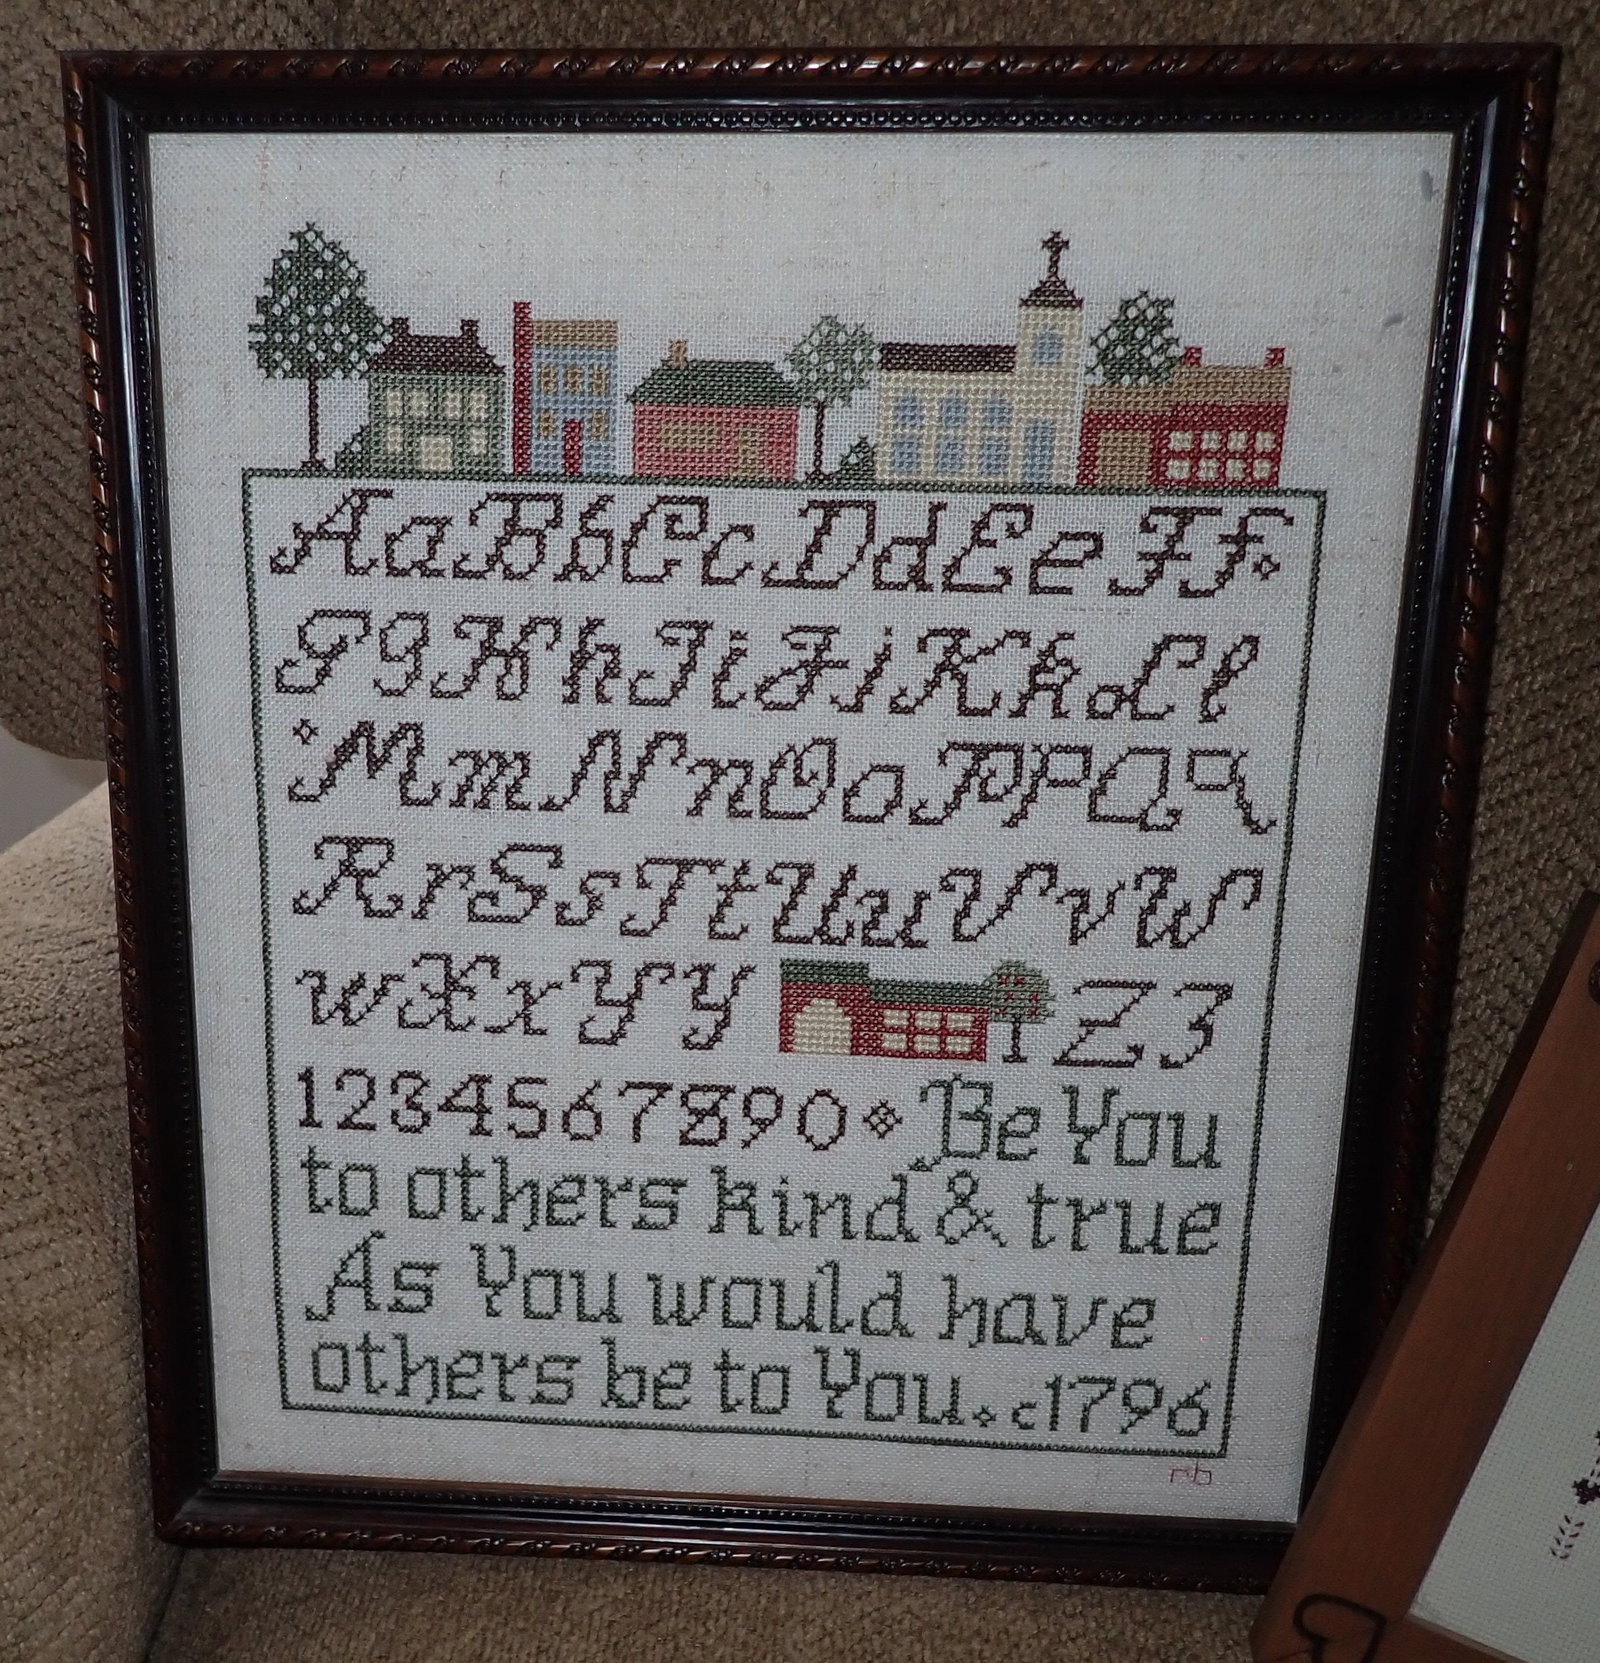 Aa Bb Cc Dd Ee Ff
Gg Hh Ii Jj Kk Ll
Mm Nn Oo Pp Qq
Rr Ss Tt Uu Vv W
w Xx Yy Zz
1234567890 Be You
to others kind & true
As You would have
others be to You. c1796
rb